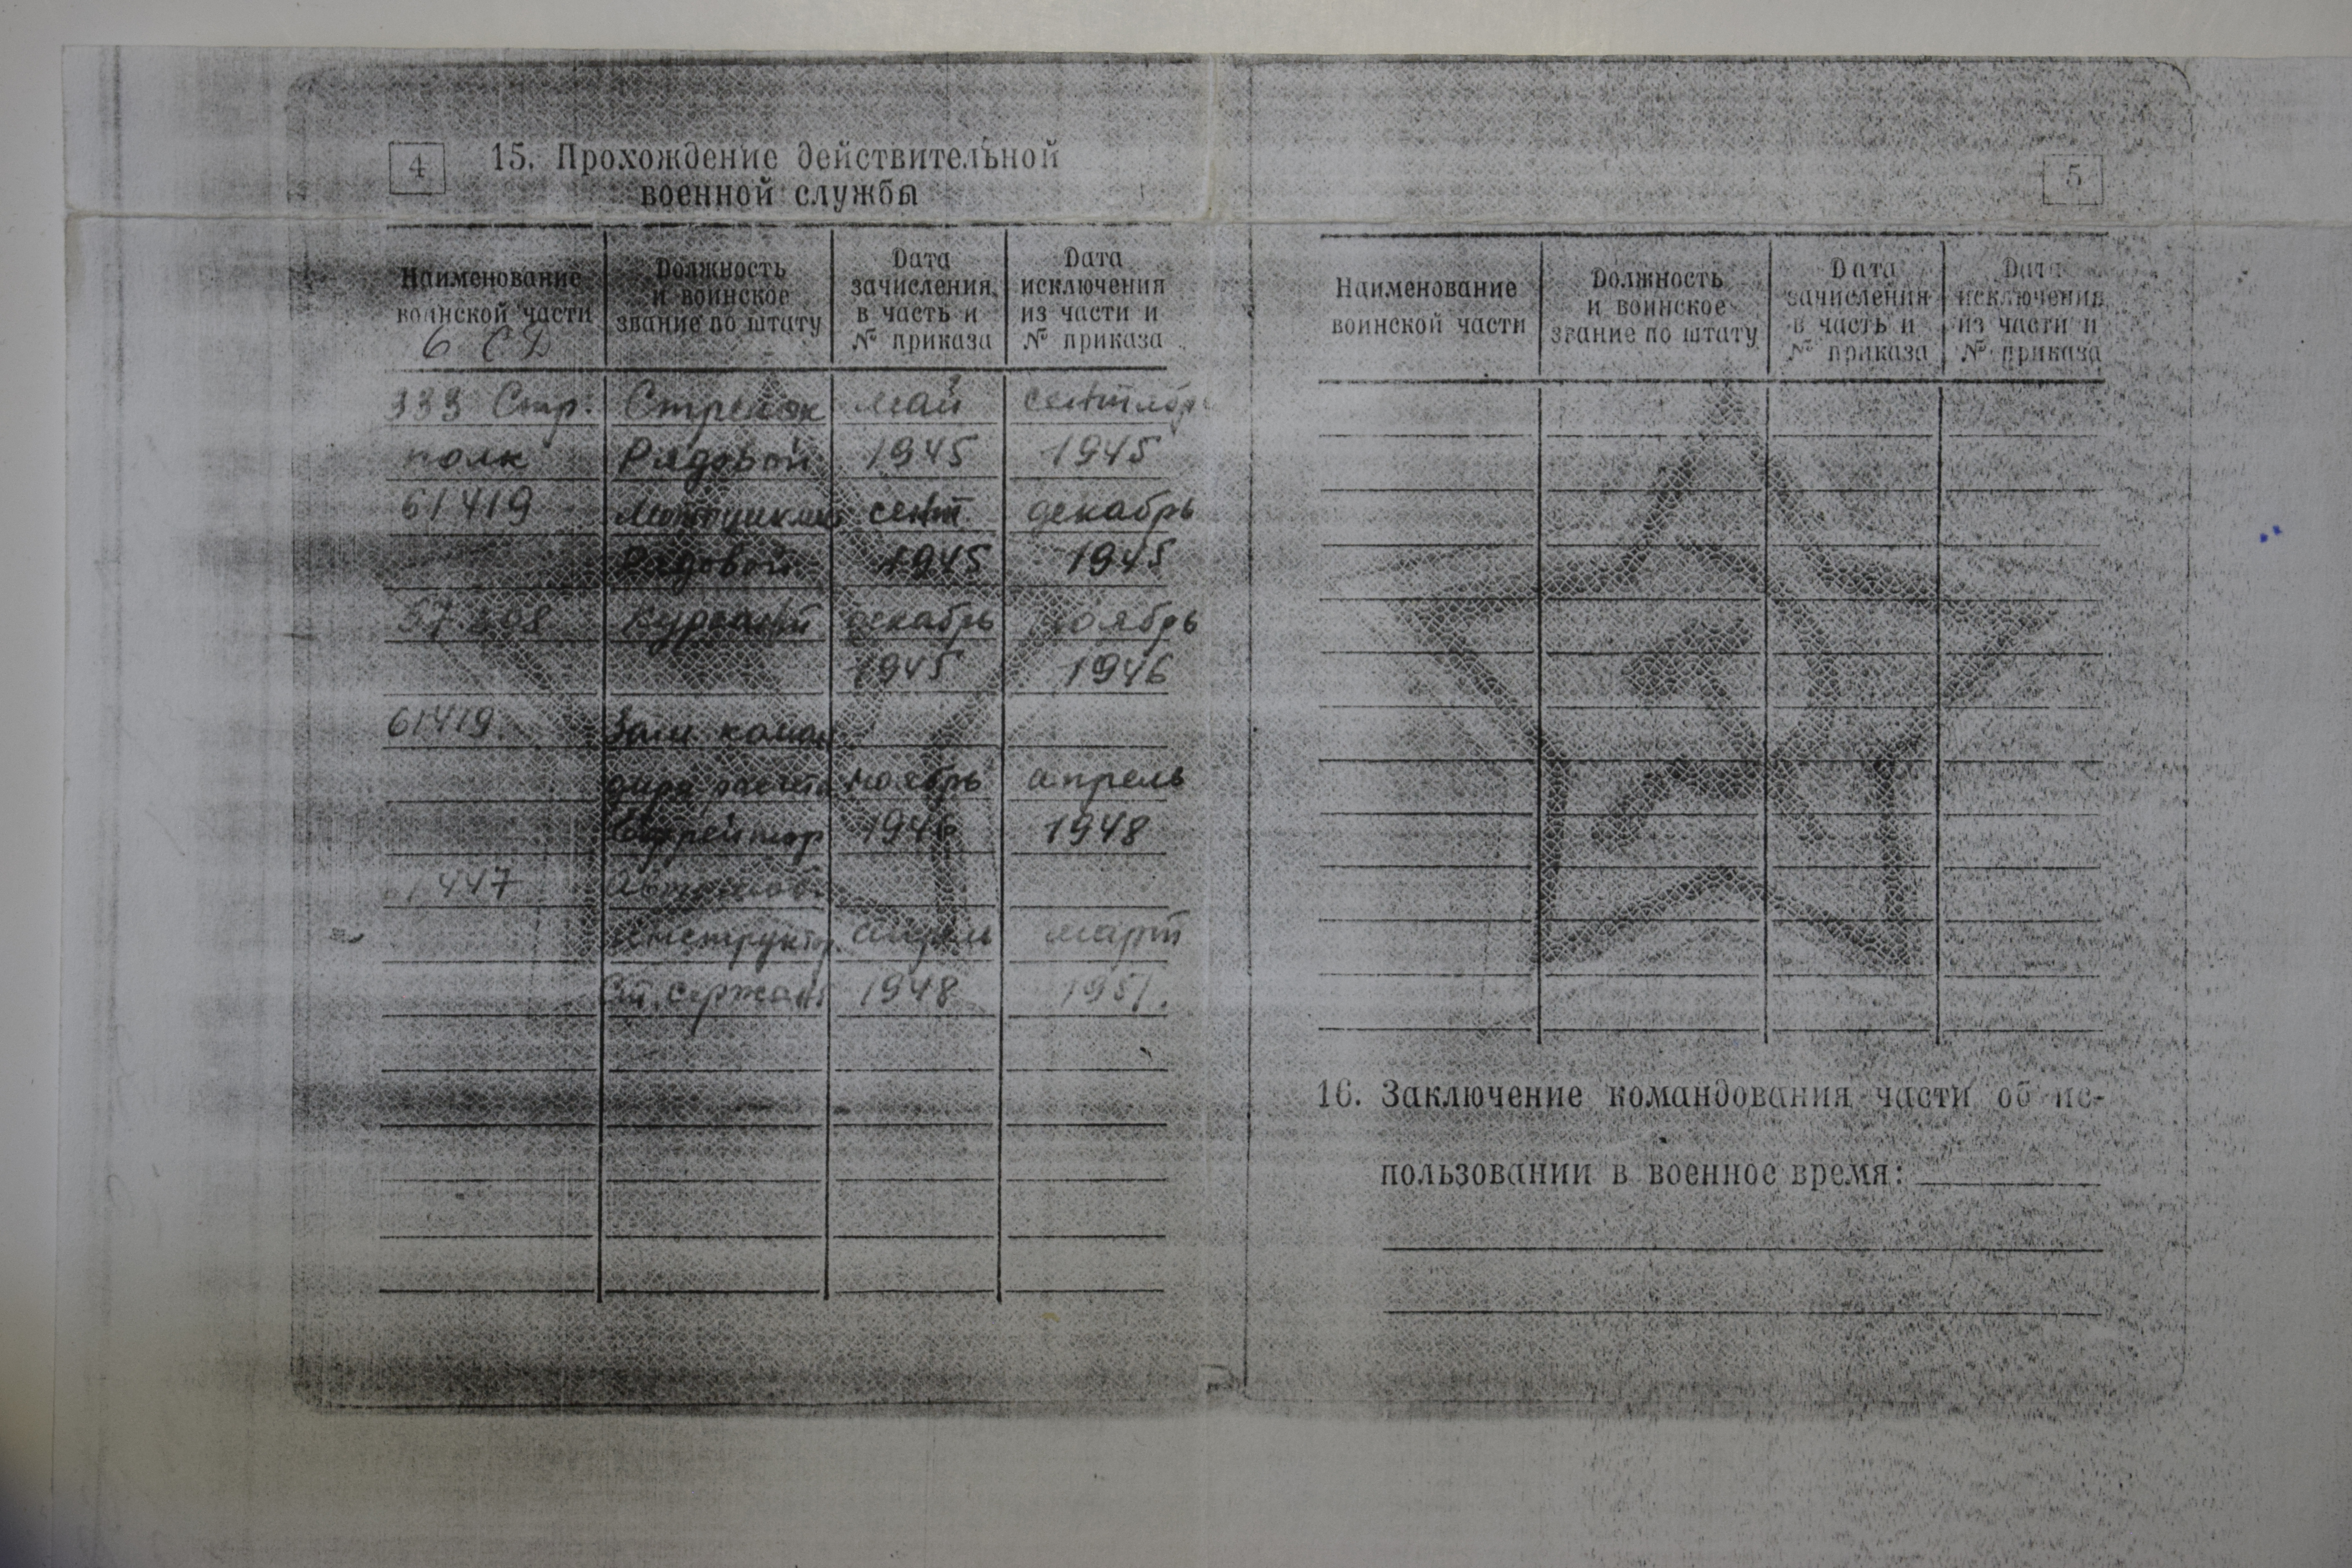 4
15. Прохождение действительной
военной службы
Наименование
воинской части
Должность
и воинское
звание по штату
Дата
зачисления
в часть и
№ приказа
Дата
исключения
из части и
№ приказа
6 СД
333 Стр. Стрелок май сентябрь
полк Рядовой 1945 1945
61419 сент. декабрь
Рядовой 1945 1945
Курсант декабрь ноябрь
1945 1946
61419. Зам коман
дира расчета ноябрь апрель
Ефрейтор 1946 1948
447 Автомоб.
инструктор. апрель март
Ст. сержант 1948 1951.
5
Наименование
воинской части
Должность
и воинское
звание по штату
Дата
зачисления
в часть и
№ приказа
Дата
исключения
из части и
№ приказа
16. Заключение командования части об ис-
пользовании в военное время: